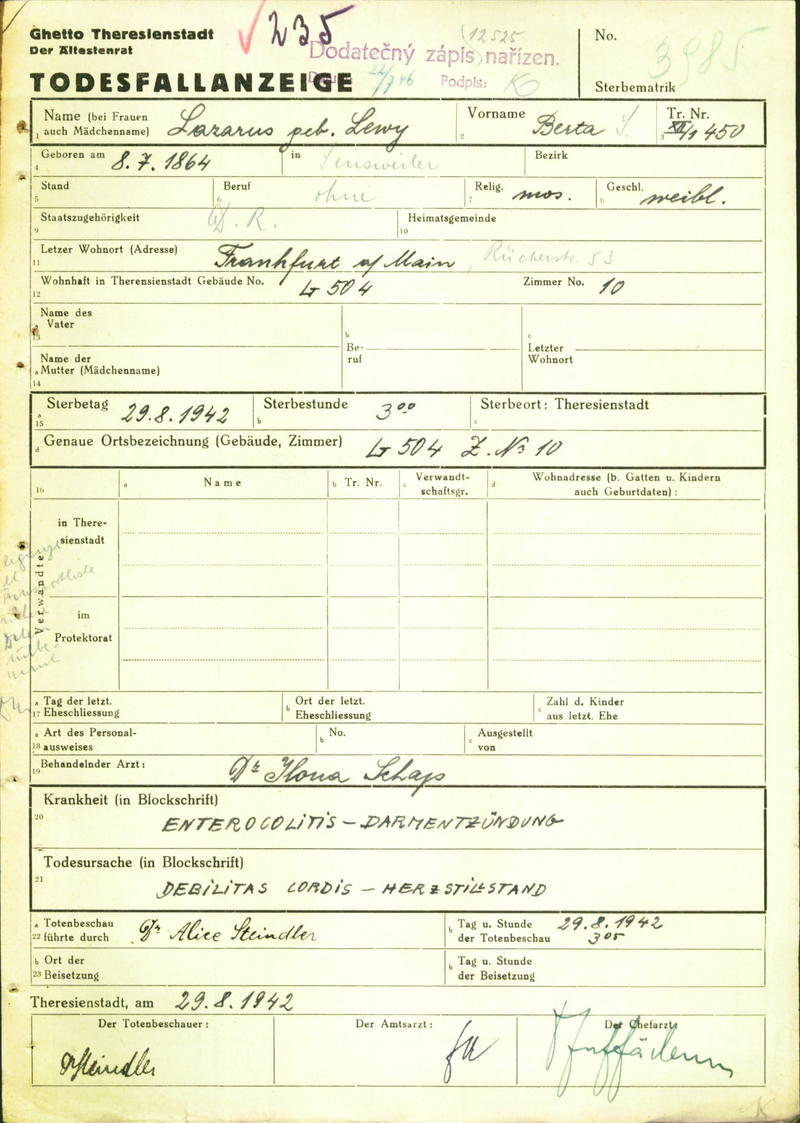 Ghetto Theresienstadt
Der Ältestenrat
TODESFALLANZEIGE
235
(12525
Dodatečný zápis nařízen.
Datum: 22/7 46 Podpis:
No. 3985
Sterbematrik
Name (bei Frauen auch Mädchenname) Lazarus geb. Lewy
1
Vorname Berta S.
2
Tr. Nr. XII/1 450
3
Geboren am 8.7.1864
4
in Sensweiler
Bezirk
Stand
5
Beruf ohne
6
Relig. mos.
7
Geschl. weibl.
8
Staatszugehörigkeit D. R.
9
Heimatsgemeinde
10
Letzer Wohnort (Adresse) Frankfurt a/Main, 53
11
Wohnhaft in Theresienstadt Gebäude No. L 504
12
Zimmer No. 10
Name des
a Vater
13
b
Be-
ruf
c
Letzter
Wohnort
Name der
a Mutter (Mädchenname)
14
a Sterbetag 29.8.1942
15
Sterbestunde 3 00
b
Sterbeort: Theresienstadt
c
d Genaue Ortsbezeichnung (Gebäude, Zimmer) L 504 Z. No 10
16
a Name
b Tr. Nr.
c Verwandt-
schaftsgr.
d Wohnadresse (b. Gatten u. Kindern
auch Geburtdaten) :
Verwandte
in There-
sienstadt
im
Protektorat
a Tag der letzt.
17 Eheschliessung
b Ort der letzt.
Eheschliessung
c Zahl d. Kinder
aus letzt. Ehe
a Art des Personal-
18 ausweises
b No.
c Ausgestellt
von
Behandelnder Arzt: Dr Ilona Schaps
19
Krankheit (in Blockschrift)
20
ENTEROCOLITIS – DARMENTZÜNDUNG
Todesursache (in Blockschrift)
21
DEBILITAS CORDIS – HERZSTILLSTAND
a Totenbeschau
22 führte durch Dr Alice Steindler
b Tag u. Stunde 29.8.1942
der Totenbeschau 3 05
b Ort der
23 Beisetzung
b Tag u. Stunde
der Beisetzung
Theresienstadt, am 29.8.1942
Der Totenbeschauer:
Der Amtsarzt:
Der Chefarzt:
Steindler